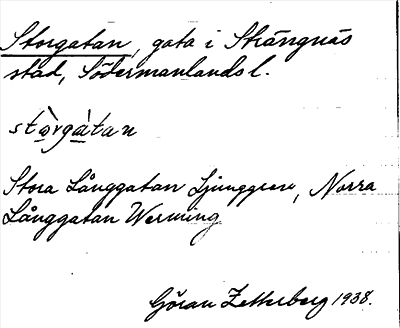 Storgatan, gata i Strängnäs
stad, Södermanlands l.
stòrgàtan
Stora Långgatan Ljunggren, Norra
Långgatan Werming
Göran Zetterberg 1938.